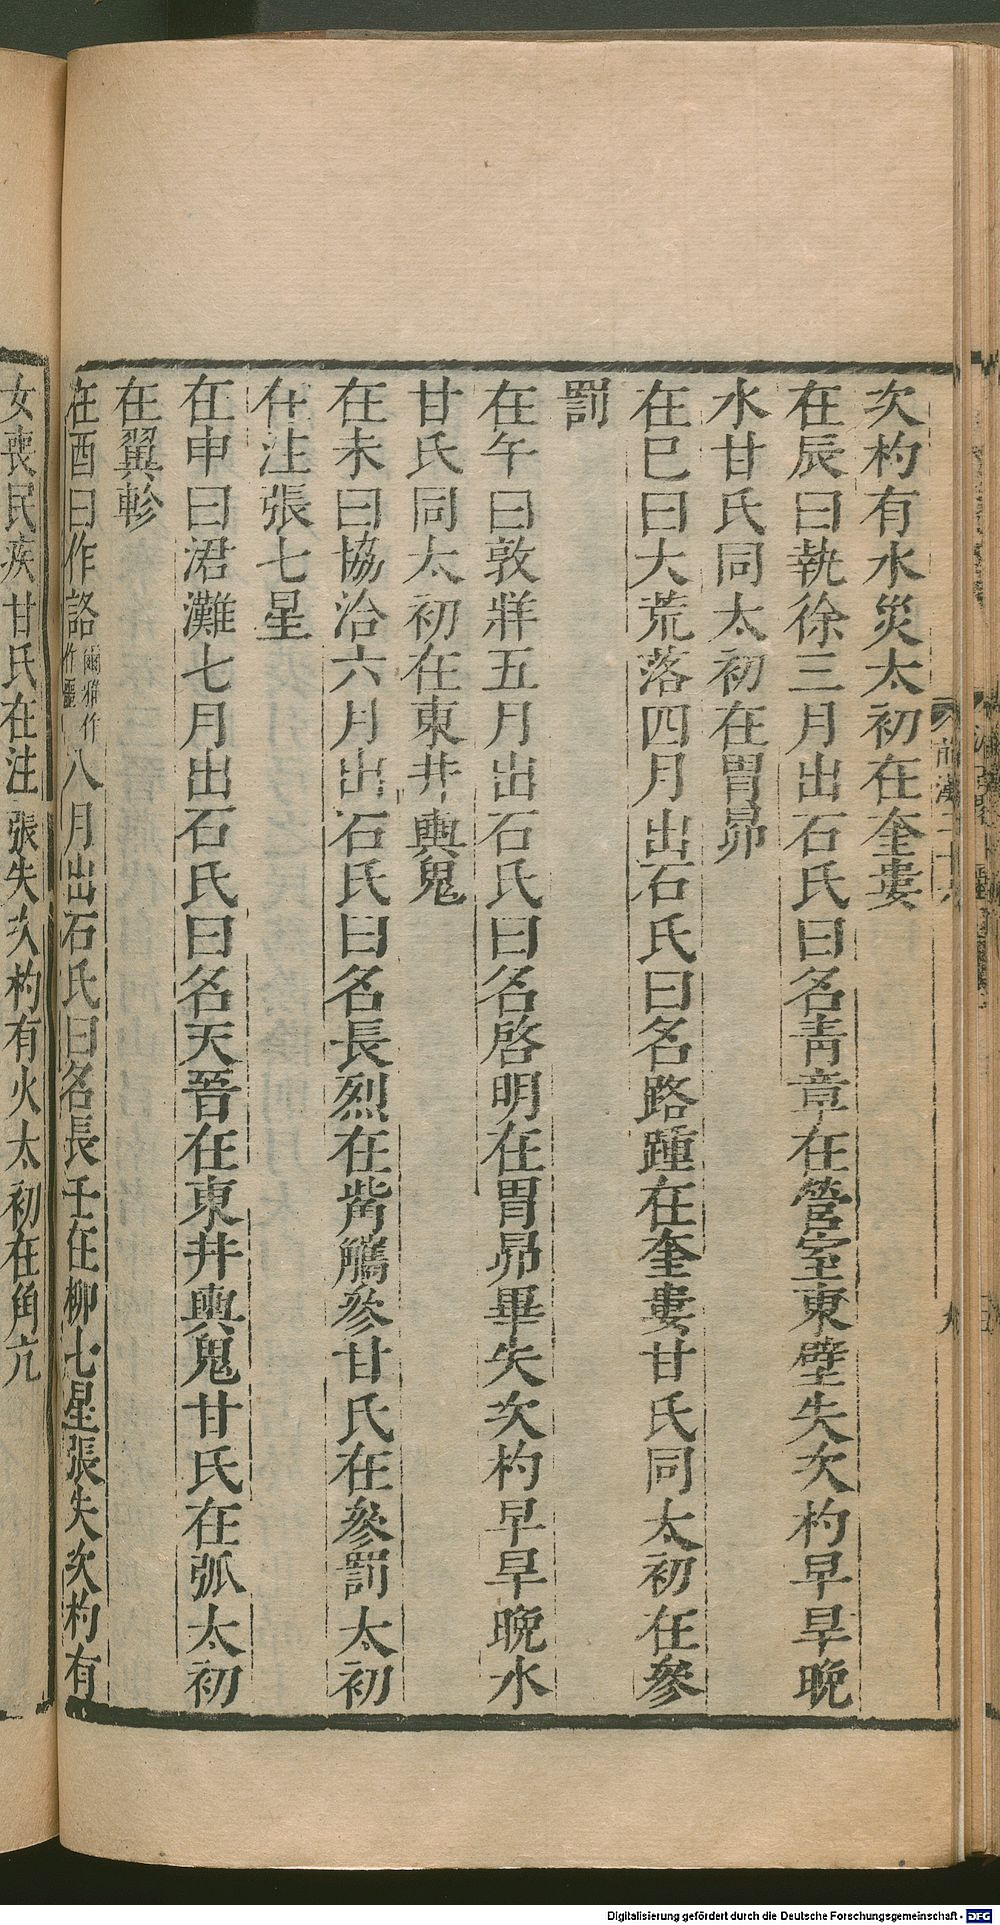 次杓有水災太初在奎婁
在辰曰執徐三月出石氏曰名靑章在營室東壁失次杓早旱晚
水甘氏同太初在胃昴
在巳曰大荒落四月出石氏曰名路踵在奎婁甘氏同太初在參
罰
在午曰敦牂五月出石氏曰名啓明在胃昴畢失次杓早旱晚水
甘氏同太初在東井輿鬼
在未曰協洽六月出石氏曰名長烈在觜觿參甘氏在參罰太初
在注張七星
在申曰涒灘七月出石氏曰名天晉在東井輿鬼甘氏在弧太初
在翼軫
在酉曰作詻爾雅作作噩八月出石氏曰名長壬在柳七星張失次杓有
女喪民疾甘氏在注張失次杓有火太初在角亢
九
Digitalisierung gefördert durch die Deutsche Forschungsgemeinschaft - DFG